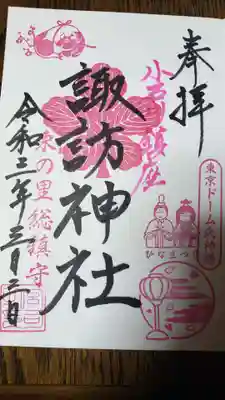 奉拝
小石川鎮座
東京ドーム氏神様
ひなまつり
諏訪神社
の里総鎮守
令和三年三月